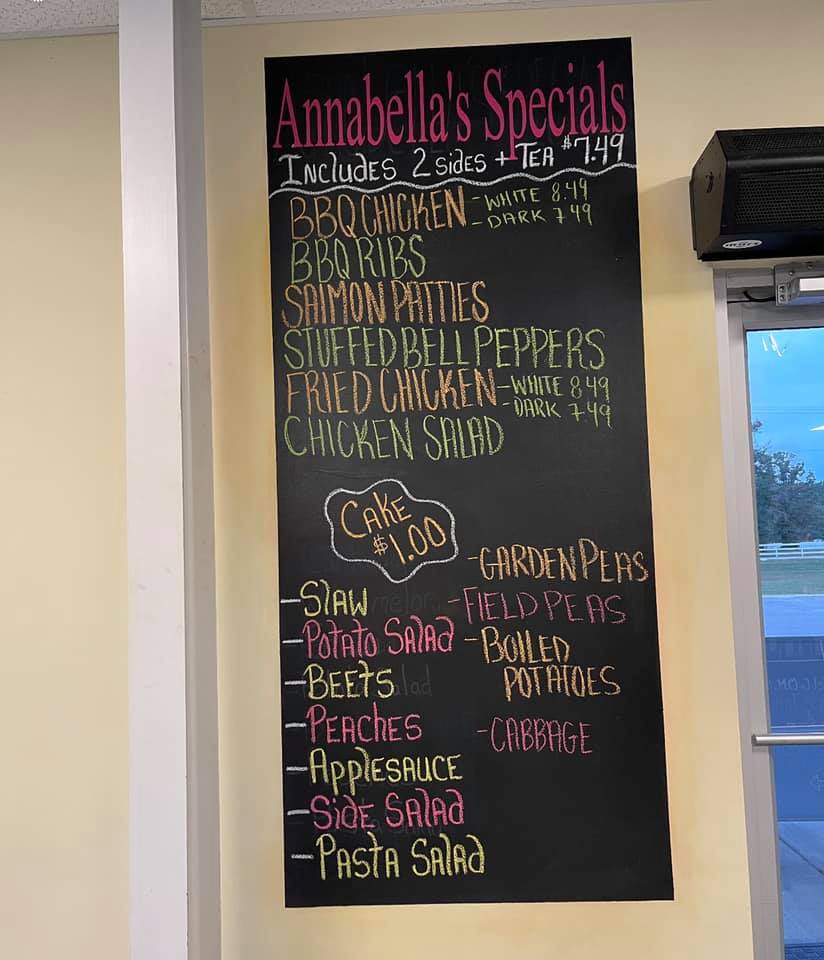 Annabella's Specials
Includes 2 sides + Tea $7.49
BBQ CHICKEN - WHITE 8.49
- DARK 7.49
BBQ RIBS
SAlMON PATTIES
STUFFED BELL PEPPERS
FRIED CHICKEN - WHITE 8.49
- DARK 7.49
CHICKEN SALAD
CAKE
$1.00
- Slaw
- Potato Salad
- Beets
- Peaches
- Applesauce
- Side Salad
- Pasta Salad
- GARDEN PEAS
- FIELD PEAS
- BOILED
POTATOES
- CABBAGE